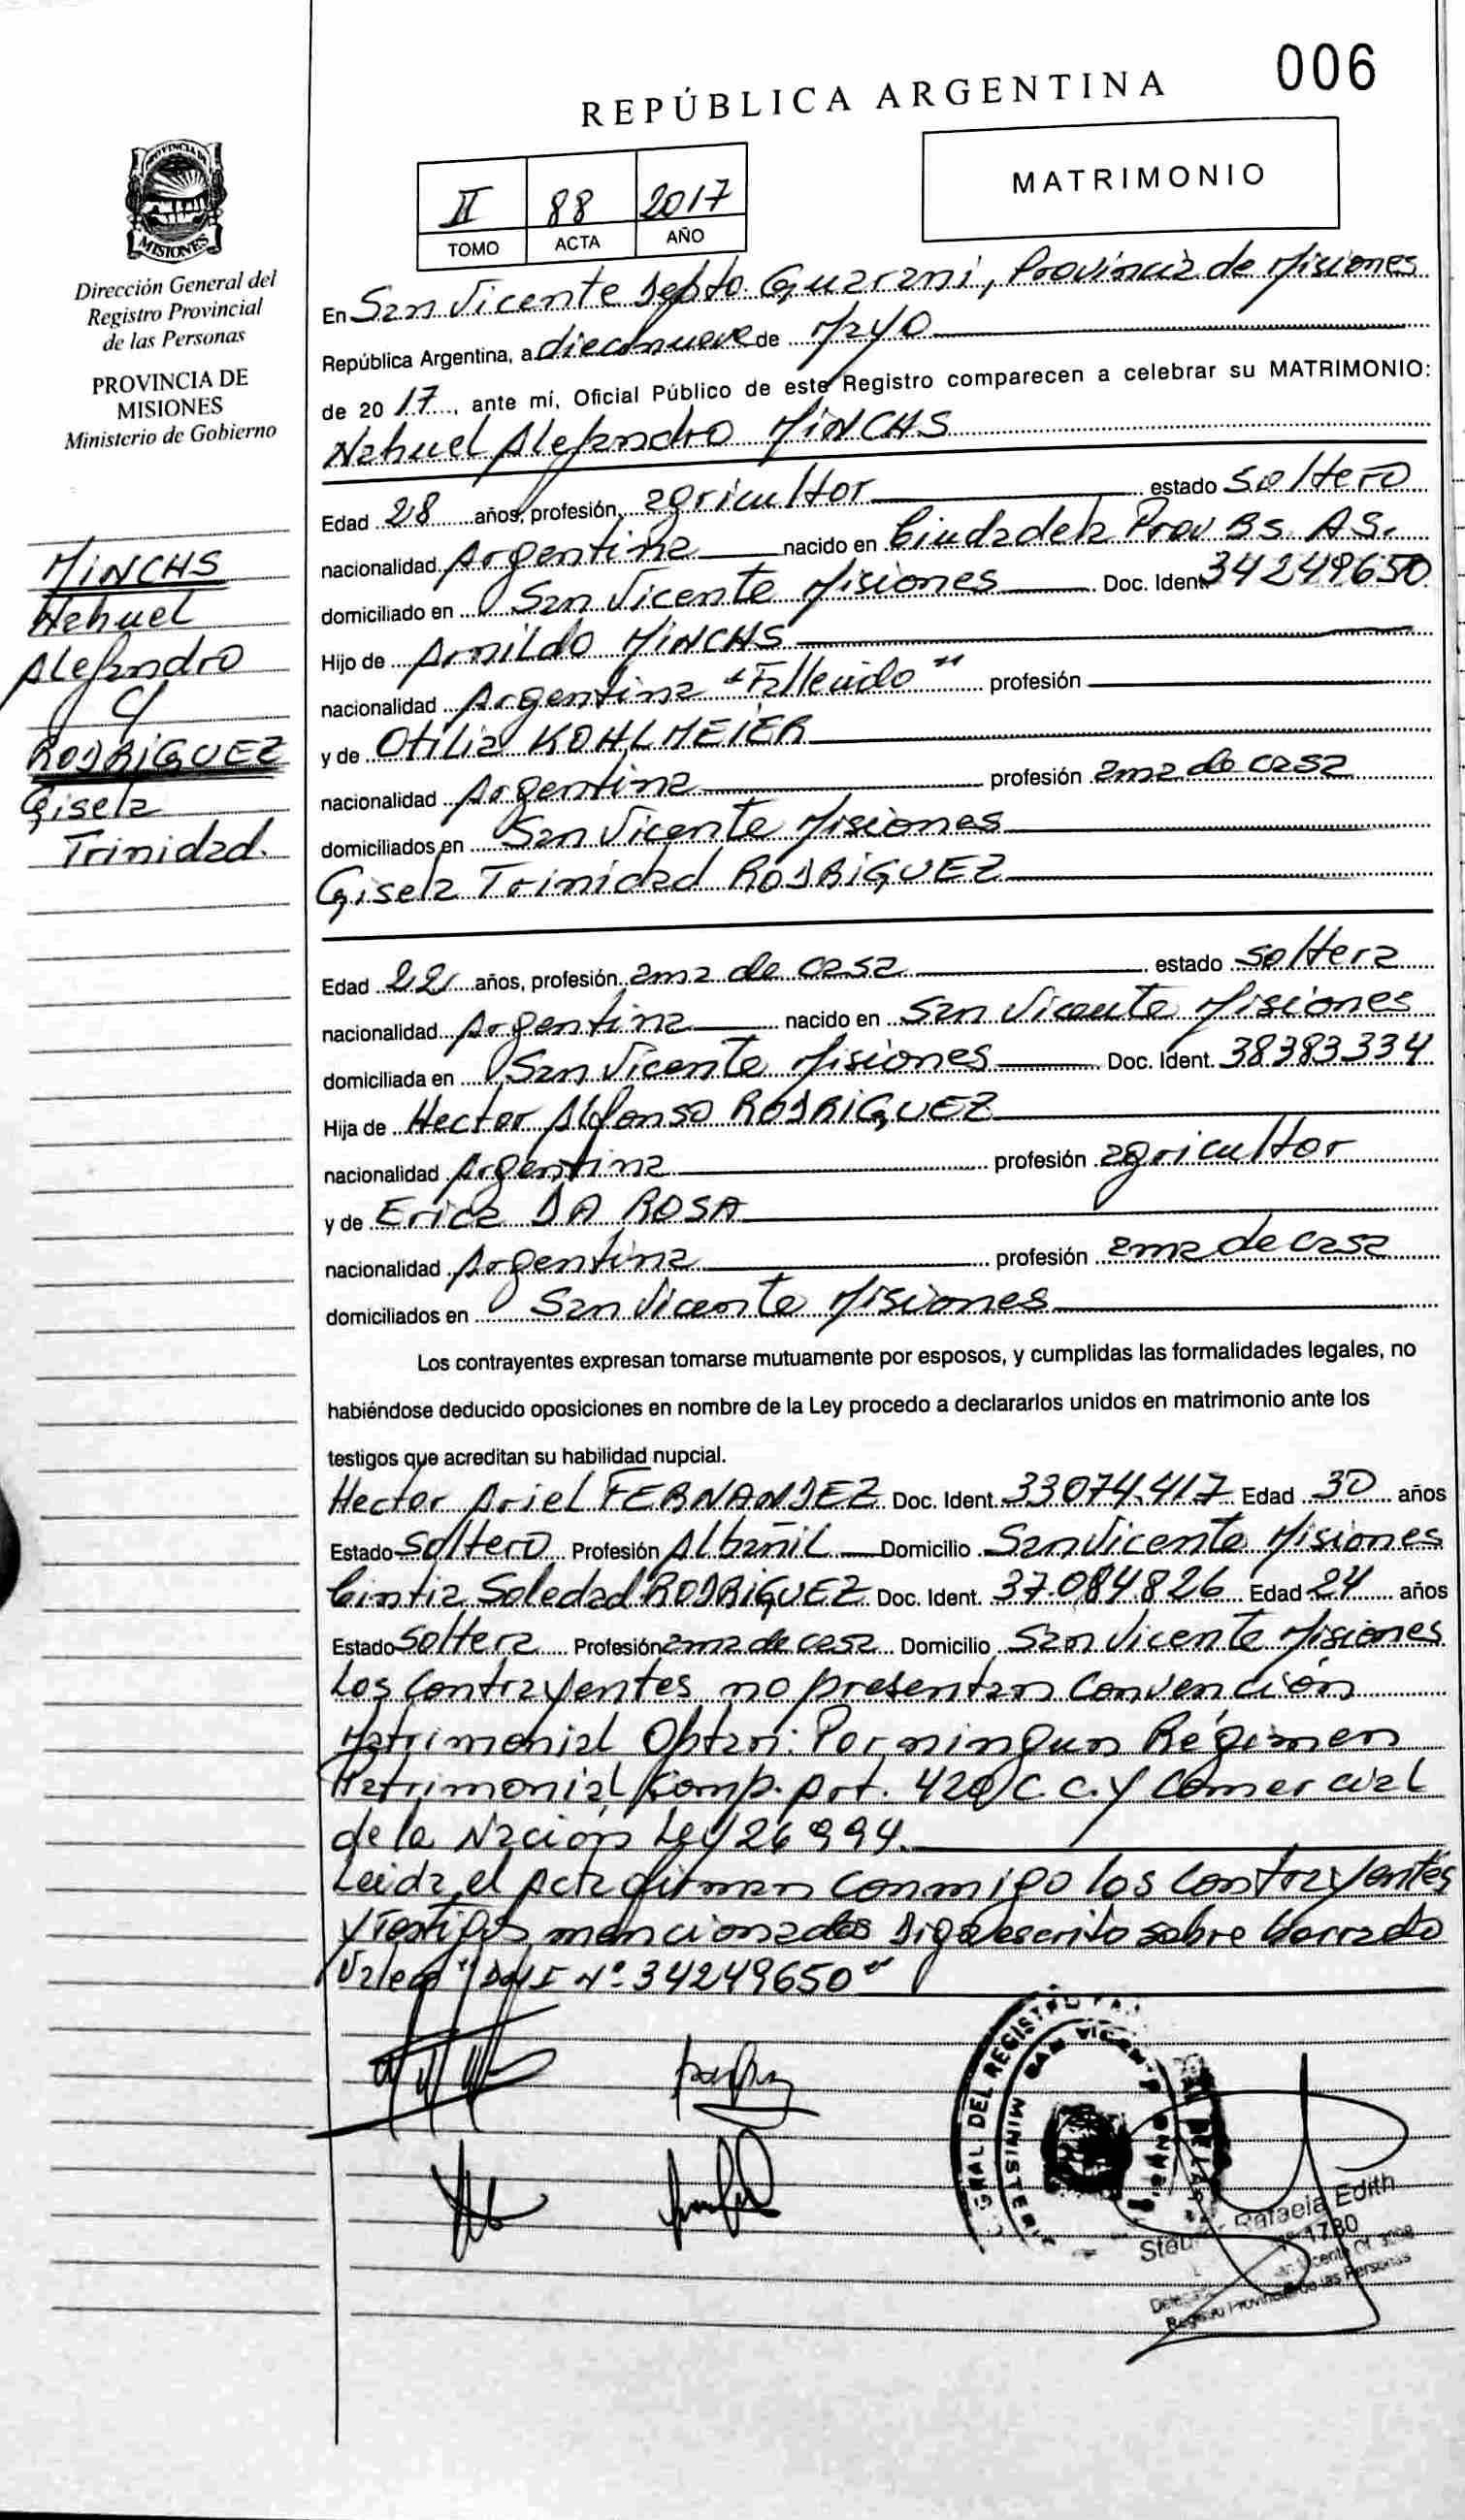 006
REPÚBLICA ARGENTINA
PROVINCIA DE
MISIONES
II 88 2017
TOMO ACTA AÑO
MATRIMONIO
Dirección General del
Registro Provincial
de las Personas
PROVINCIA DE
MISIONES
Ministerio de Gobierno
MINCHS
Nahuel
Alejandro
C/
RODRIGUEZ
Gisela
Trinidad.
En San Vicente Depto. Guarani, Provincia de Misiones
República Argentina, a diecinueve de Mayo
de 20 17, ante mí, Oficial Público de este Registro comparecen a celebrar su MATRIMONIO:
Nahuel Alejandro MINCHS
Edad 28 años, profesión agricultor estado Soltero
nacionalidad Argentina nacido en Ciudadela Prov Bs. AS.
domiciliado en San Vicente Misiones Doc. Ident 34249650
Hijo de Arnildo MINCHS
nacionalidad Argentina "Fallecido" profesión
y de Otilia KOHLMEIER
nacionalidad Argentina profesión ama de casa
domiciliados en San Vicente Misiones
Gisela Trinidad RODRIGUEZ
Edad 22 años, profesión ama de casa estado Soltera
nacionalidad Argentina nacido en San Vicente Misiones
domiciliada en San Vicente Misiones Doc. Ident. 38383334
Hija de Hector Alfonso RODRIGUEZ
nacionalidad Argentina profesión agricultor
y de Erica DA ROSA
nacionalidad Argentina profesión ama de casa
domiciliados en San Vicente Misiones
Los contrayentes expresan tomarse mutuamente por esposos, y cumplidas las formalidades legales, no
habiéndose deducido oposiciones en nombre de la Ley procedo a declararlos unidos en matrimonio ante los
testigos que acreditan su habilidad nupcial.
Hector Ariel FERNANDEZ Doc. Ident. 33074.417 Edad 30 años
Estado Soltero Profesión Albañil Domicilio San Vicente Misiones
Cintia Soledad RODRIGUEZ Doc. Ident. 37.084.826 Edad 24 años
Estado Soltera Profesión ama de casa Domicilio San Vicente Misiones
Los Contrayentes no presentan Convención
Matrimonial Optan: Por ningun Régimen
Patrimonial Comp. Art. 420 C.C. y Comercial
de la Nación Ley 26994.
Leida el Acta firman conmigo los Contrayentes
y Testigos mencionados Digo escrito sobre borrado
Vale "DNI Nº 34249650"
GRAL DEL REGISTRO
SAN VICENTE
MINISTER
Rafaela Edith
1780
Registro Provincial de las Personas